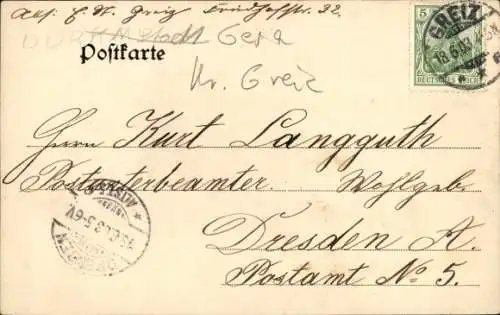 Abs: E. H. Greiz Friedhofstr. 32.
Gera
Postkarte
Kr. Greiz
5
DEUTSCHES REICH
GREIZ
18.6.03
Herrn Kurt Langguth
Postunterbeamter. Wohlgeb.
Dresden A.
Postamt No 5.
DRESDEN